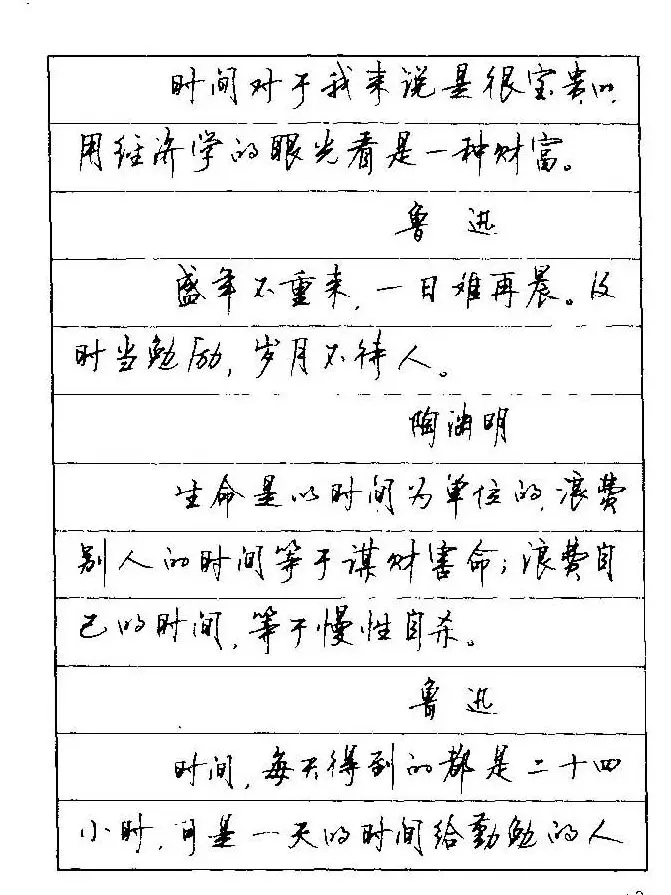 时间对于我来说是很宝贵的,
用经济学的眼光看是一种财富。
鲁迅
盛年不重来,一日难再晨。及
时当勉励,岁月不待人。
陶渊明
生命是以时间为单位的,浪费
别人的时间等于谋财害命;浪费自
己的时间,等于慢性自杀。
鲁迅
时间,每天得到的都是二十四
小时,可是一天的时间给勤勉的人